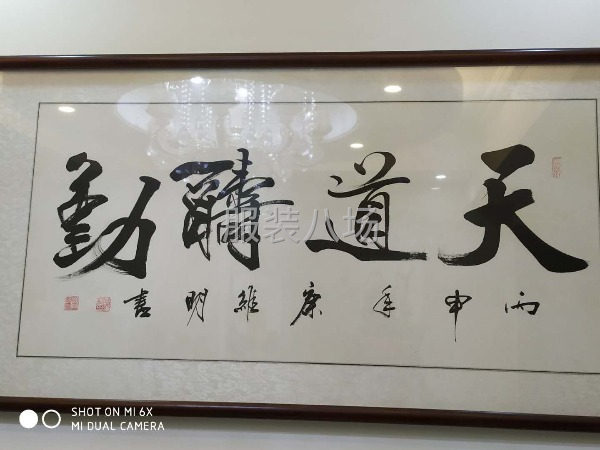 天道酬勤
丙申年康維明書
服装八场
SHOT ON MI 6X
MI DUAL CAMERA